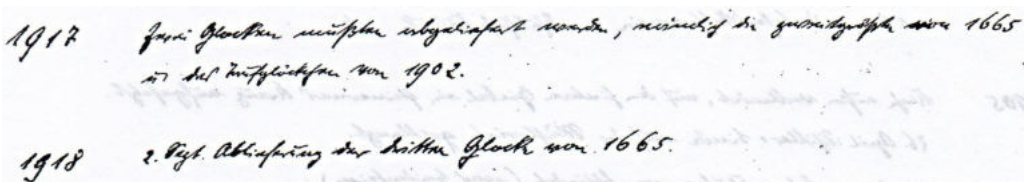 1917 Zwei Glocken mußten abgeliefert werden, nämlich die zweitgrößte von 1665
u. das Taufglöckchen von 1902.
1918 2. Sept. Ablieferung der dritten Glocke von 1665.